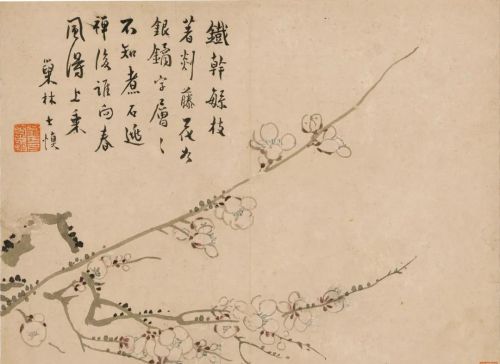 鐵幹繇枝
著剡藤花如
銀鏑字層〻
不知煮石逃
禪後誰向春
風得上乘
巢林士慎